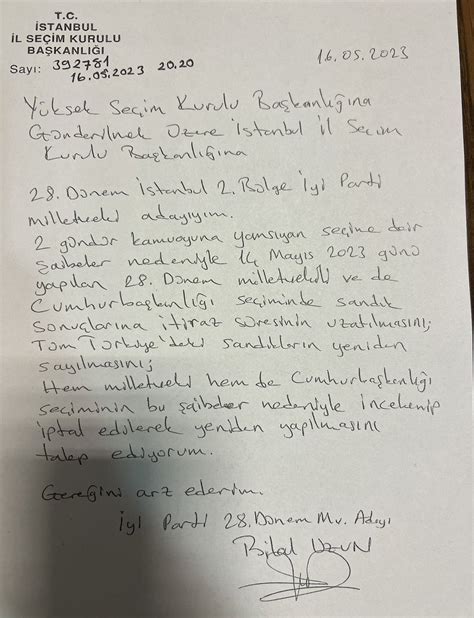 T.C.
İSTANBUL
İL SEÇİM KURULU
BAŞKANLIĞI
Sayı: 392781
16.05.2023 20.20
16.05.2023
Yüksek Seçim Kurulu Başkanlığına
Gönderilmek Üzere İstanbul İl Seçim
Kurulu Başkanlığına
28. Dönem İstanbul 2. Bölge İyi Parti
milletvekili adayıyım.
2 gündür kamuoyuna yansıyan seçime dair
şaibeler nedeniyle 14 Mayıs 2023 günü
yapılan 28. Dönem milletvekili ve de
Cumhurbaşkanlığı seçiminde sandık
sonuçlarına itiraz süresinin uzatılmasını;
Tüm Türkiye'deki sandıkların yeniden
sayılmasını;
Hem milletvekili hem de Cumhurbaşkanlığı
seçiminin bu şaibeler nedeniyle incelenip
iptal edilerek yeniden yapılmasını
talep ediyorum.
Gereğini arz ederim.
İyi Parti 28. Dönem Mv. Adayı
Bilal UZUN